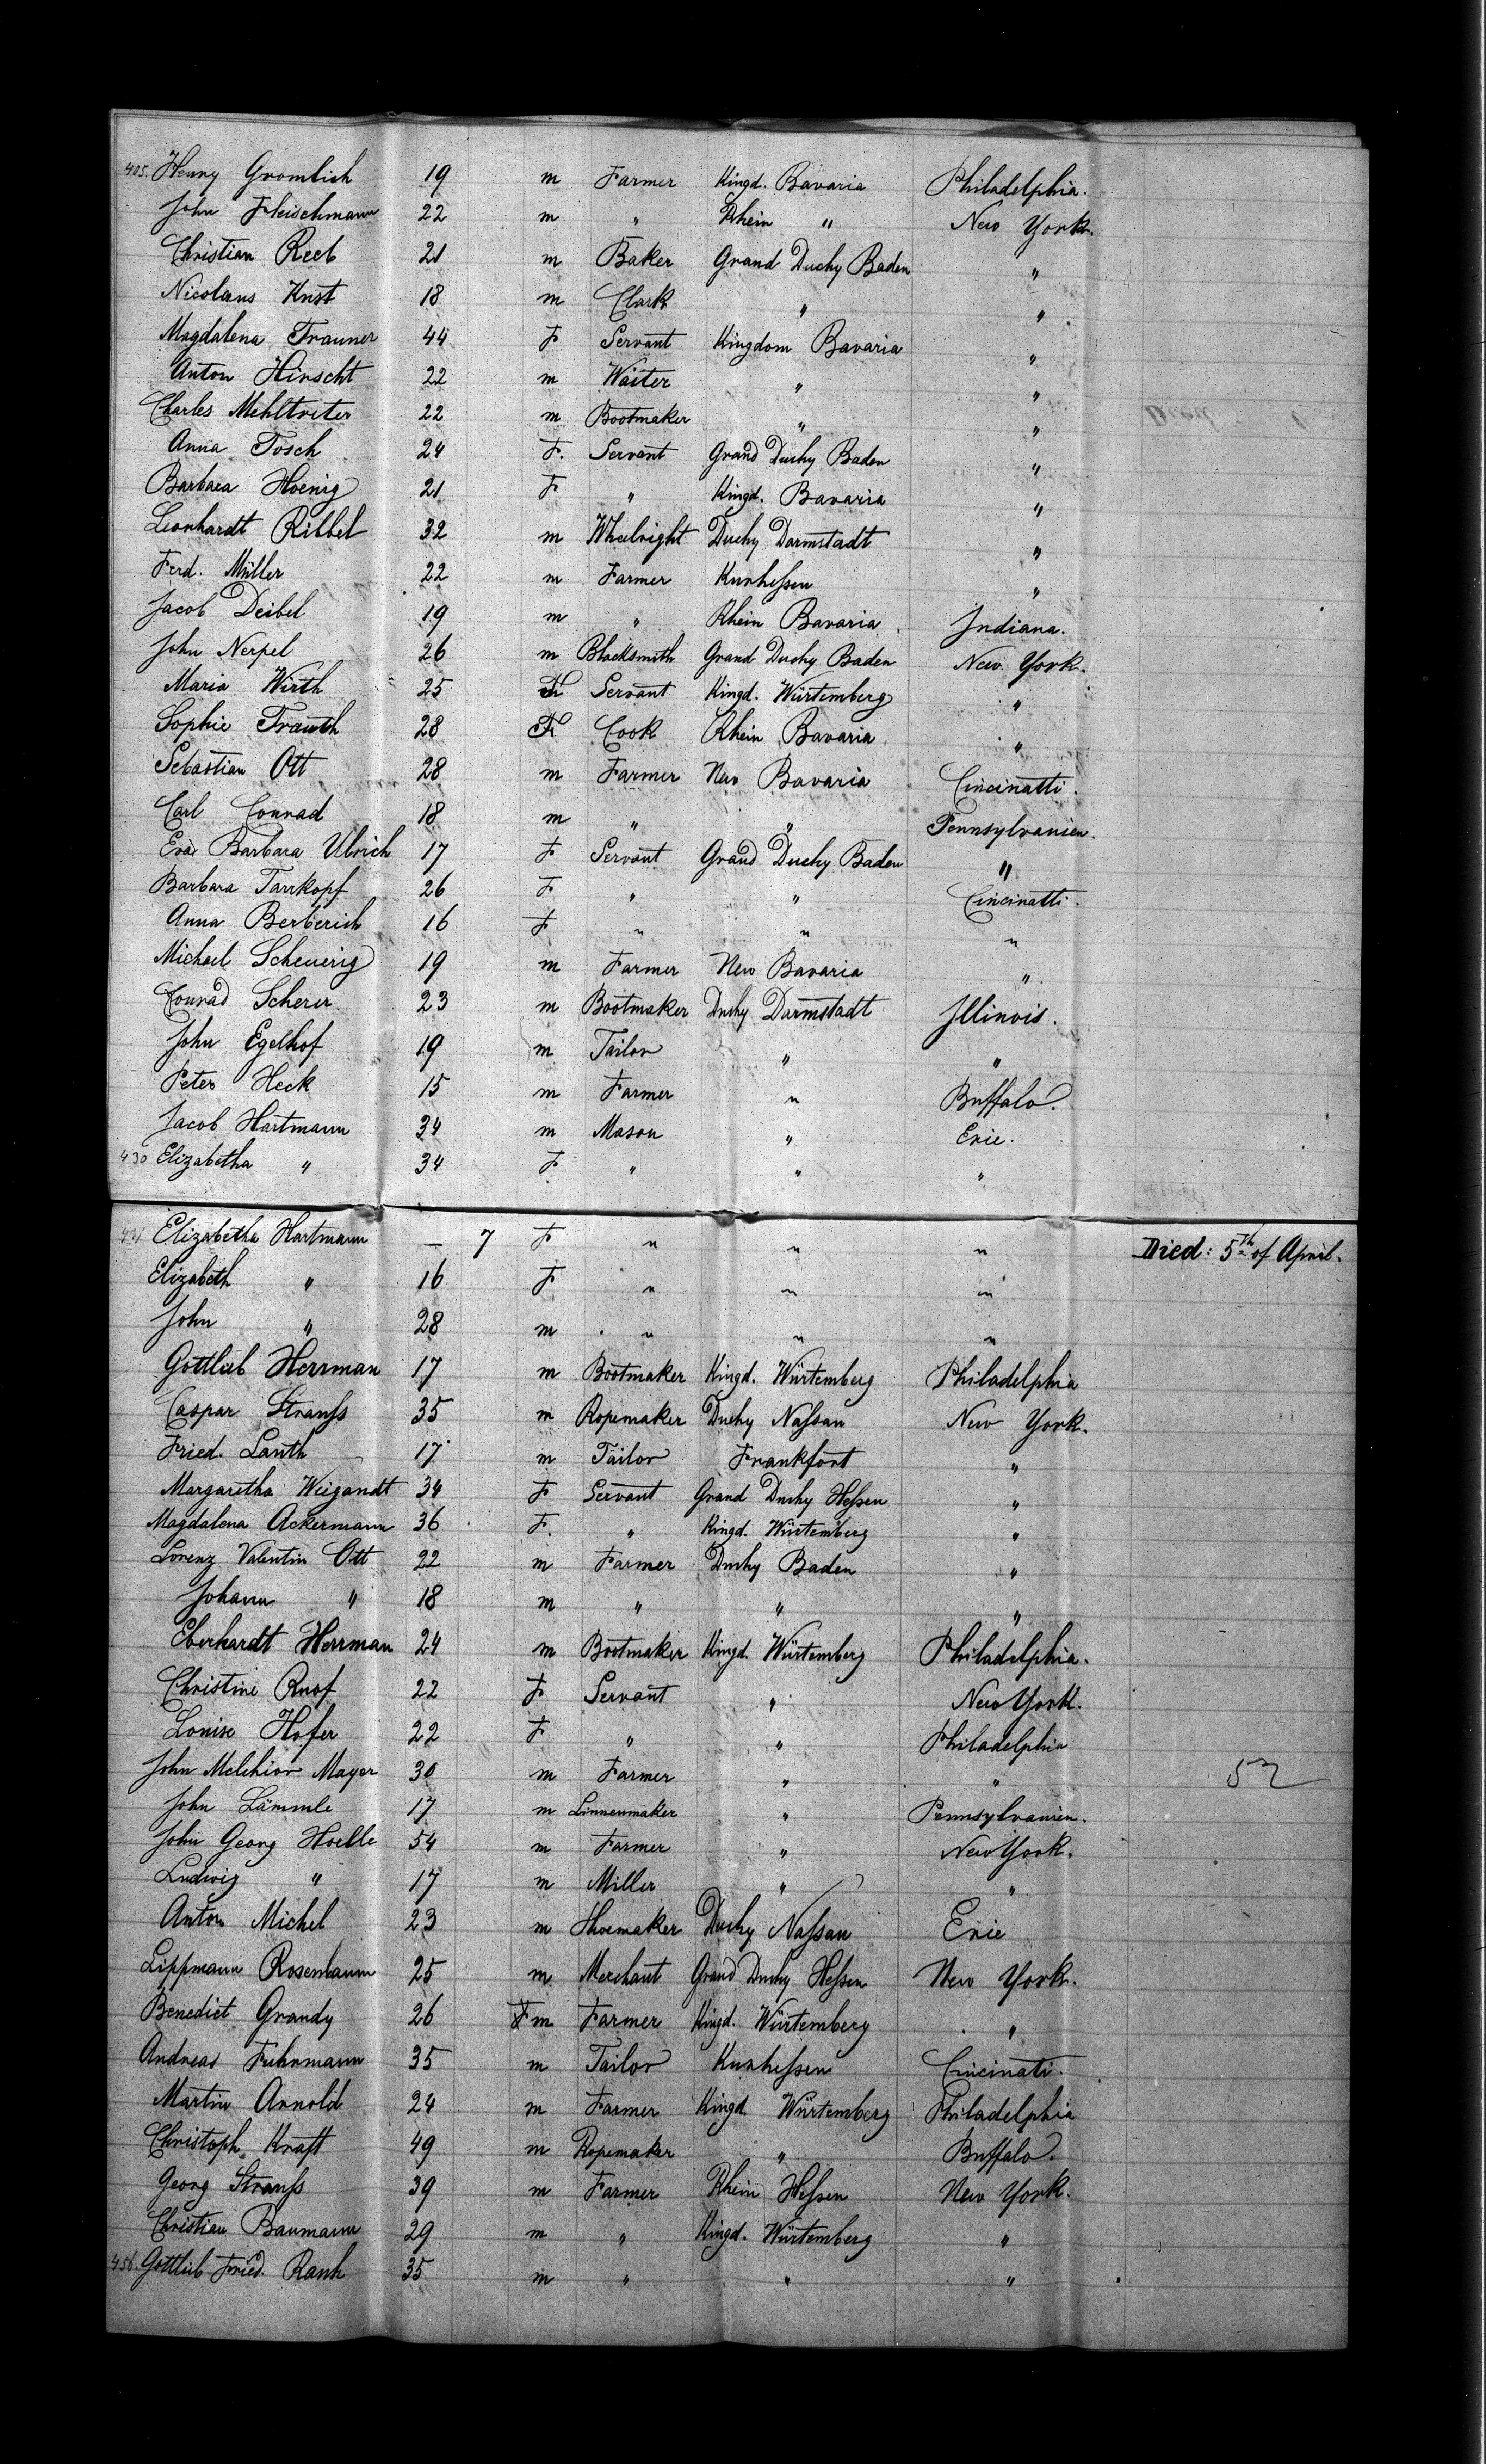 405. Henry Gromlich 19 m Farmer Kingd. Bavaria Philadelphia.
John Fleischmann 22 m " Rhein " New York.
Christian Reeb 21 m Baker Grand Duchy Baden "
Nicolaus Knst 18 m Clark " "
Magdalena Trauner 44 F Servant Kingdom Bavaria "
Anton Hirscht 22 m Waiter " "
Charles Mehltreter 22 m Bootmaker " "
Anna Tosch 24 F. Servant Grand Duchy Baden "
Barbara Hoenig 21 F " Kingd. Bavaria "
Leonhardt Ribbel 32 m Wheelright Duchy Darmstadt "
Ferd. Müller 22 m Farmer Kurheſsen "
Jacob Deibel 19 m " Rhein Bavaria Indiana.
John Nerpel 26 m Blacksmith Grand Duchy Baden New York.
Maria Wirth 25 F Servant Kingd. Würtemberg "
Sophie Trauth 28 F Cook Rhein Bavaria "
Sebastian Ott 28 m Farmer New Bavaria Cincinatti.
Carl Conrad 18 m " " Pennsylvanien.
Eva Barbara Ulrich 17 F Servant Grand Duchy Baden "
Barbara Tarrkopf 26 F " " Cincinatti.
Anna Berberich 16 F " " "
Michael Scheuerig 19 m Farmer New Bavaria "
Conrad Scherer 23 m Bootmaker Duchy Darmstadt Illinois.
John Egelhof 19 m Tailor " "
Peter Heck 15 m Farmer " Buffalo.
Jacob Hartmann 34 m Mason " Erie.
430 Elizabetha " 34 F " " "
431 Elizabetha Hartmann — 7 F " " " Died: 5th of April.
Elizabeth " 16 F " " "
John " 28 m " " "
Gottlieb Herrman 17 m Bootmaker Kingd. Würtemberg Philadelphia
Caspar Strauſs 35 m Ropemaker Duchy Naſsau New York.
Fried. Lauth 17 m Tailor Frankfort "
Margaretha Weigandt 34 F Servant Grand Duchy Heſsen "
Magdalena Ackermann 36 F. " Kingd. Würtemberg "
Lorenz Valentin Ott 22 m Farmer Duchy Baden "
Johann " 18 m " " "
Eberhardt Herrman 24 m Bootmaker Kingd. Würtemberg Philadelphia.
Christine Ruof 22 F Servant " New York.
Louise Hofer 22 F " " Philadelphia
John Melchior Mayer 30 m Farmer " " 52
John Lämmle 17 m Linnenmaker " Pennsylvanien.
John Georg Hoelle 54 m Farmer " New York.
Ludwig " 17 m Miller " "
Anton Michel 23 m Shoemaker Duchy Naſsau Erie
Lippmann Rosenbaum 25 m Merchant Grand Duchy Heſsen New York.
Benedict Grandy 26 F m Farmer Kingd. Würtemberg "
Andreas Fuhrmann 35 m Tailor Kurheſsen Cincinati.
Martin Arnold 24 m Farmer Kingd. Würtemberg Philadelphia
Christoph Kraft 49 m Ropemaker " Buffalo.
Georg Strauſs 39 m Farmer Rhein Heſsen New York.
Christian Baumann 29 m " Kingd. Würtemberg "
456. Gottlieb Fried. Rauh 35 m " " "